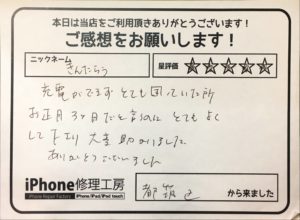 本日は当店をご利用頂きありがとうございます!
ご感想をお願いします!
ニックネーム
きんたろう
星評価
充電ができず とても困っていた所
お正月3ヶ日だと言うのに とてもよく
して下さり 大変助かりました
ありがとうございました
iPhone修理工房
iPhone Repair Factory
iPhone/iPad/iPod touch
都筑区
から来ました